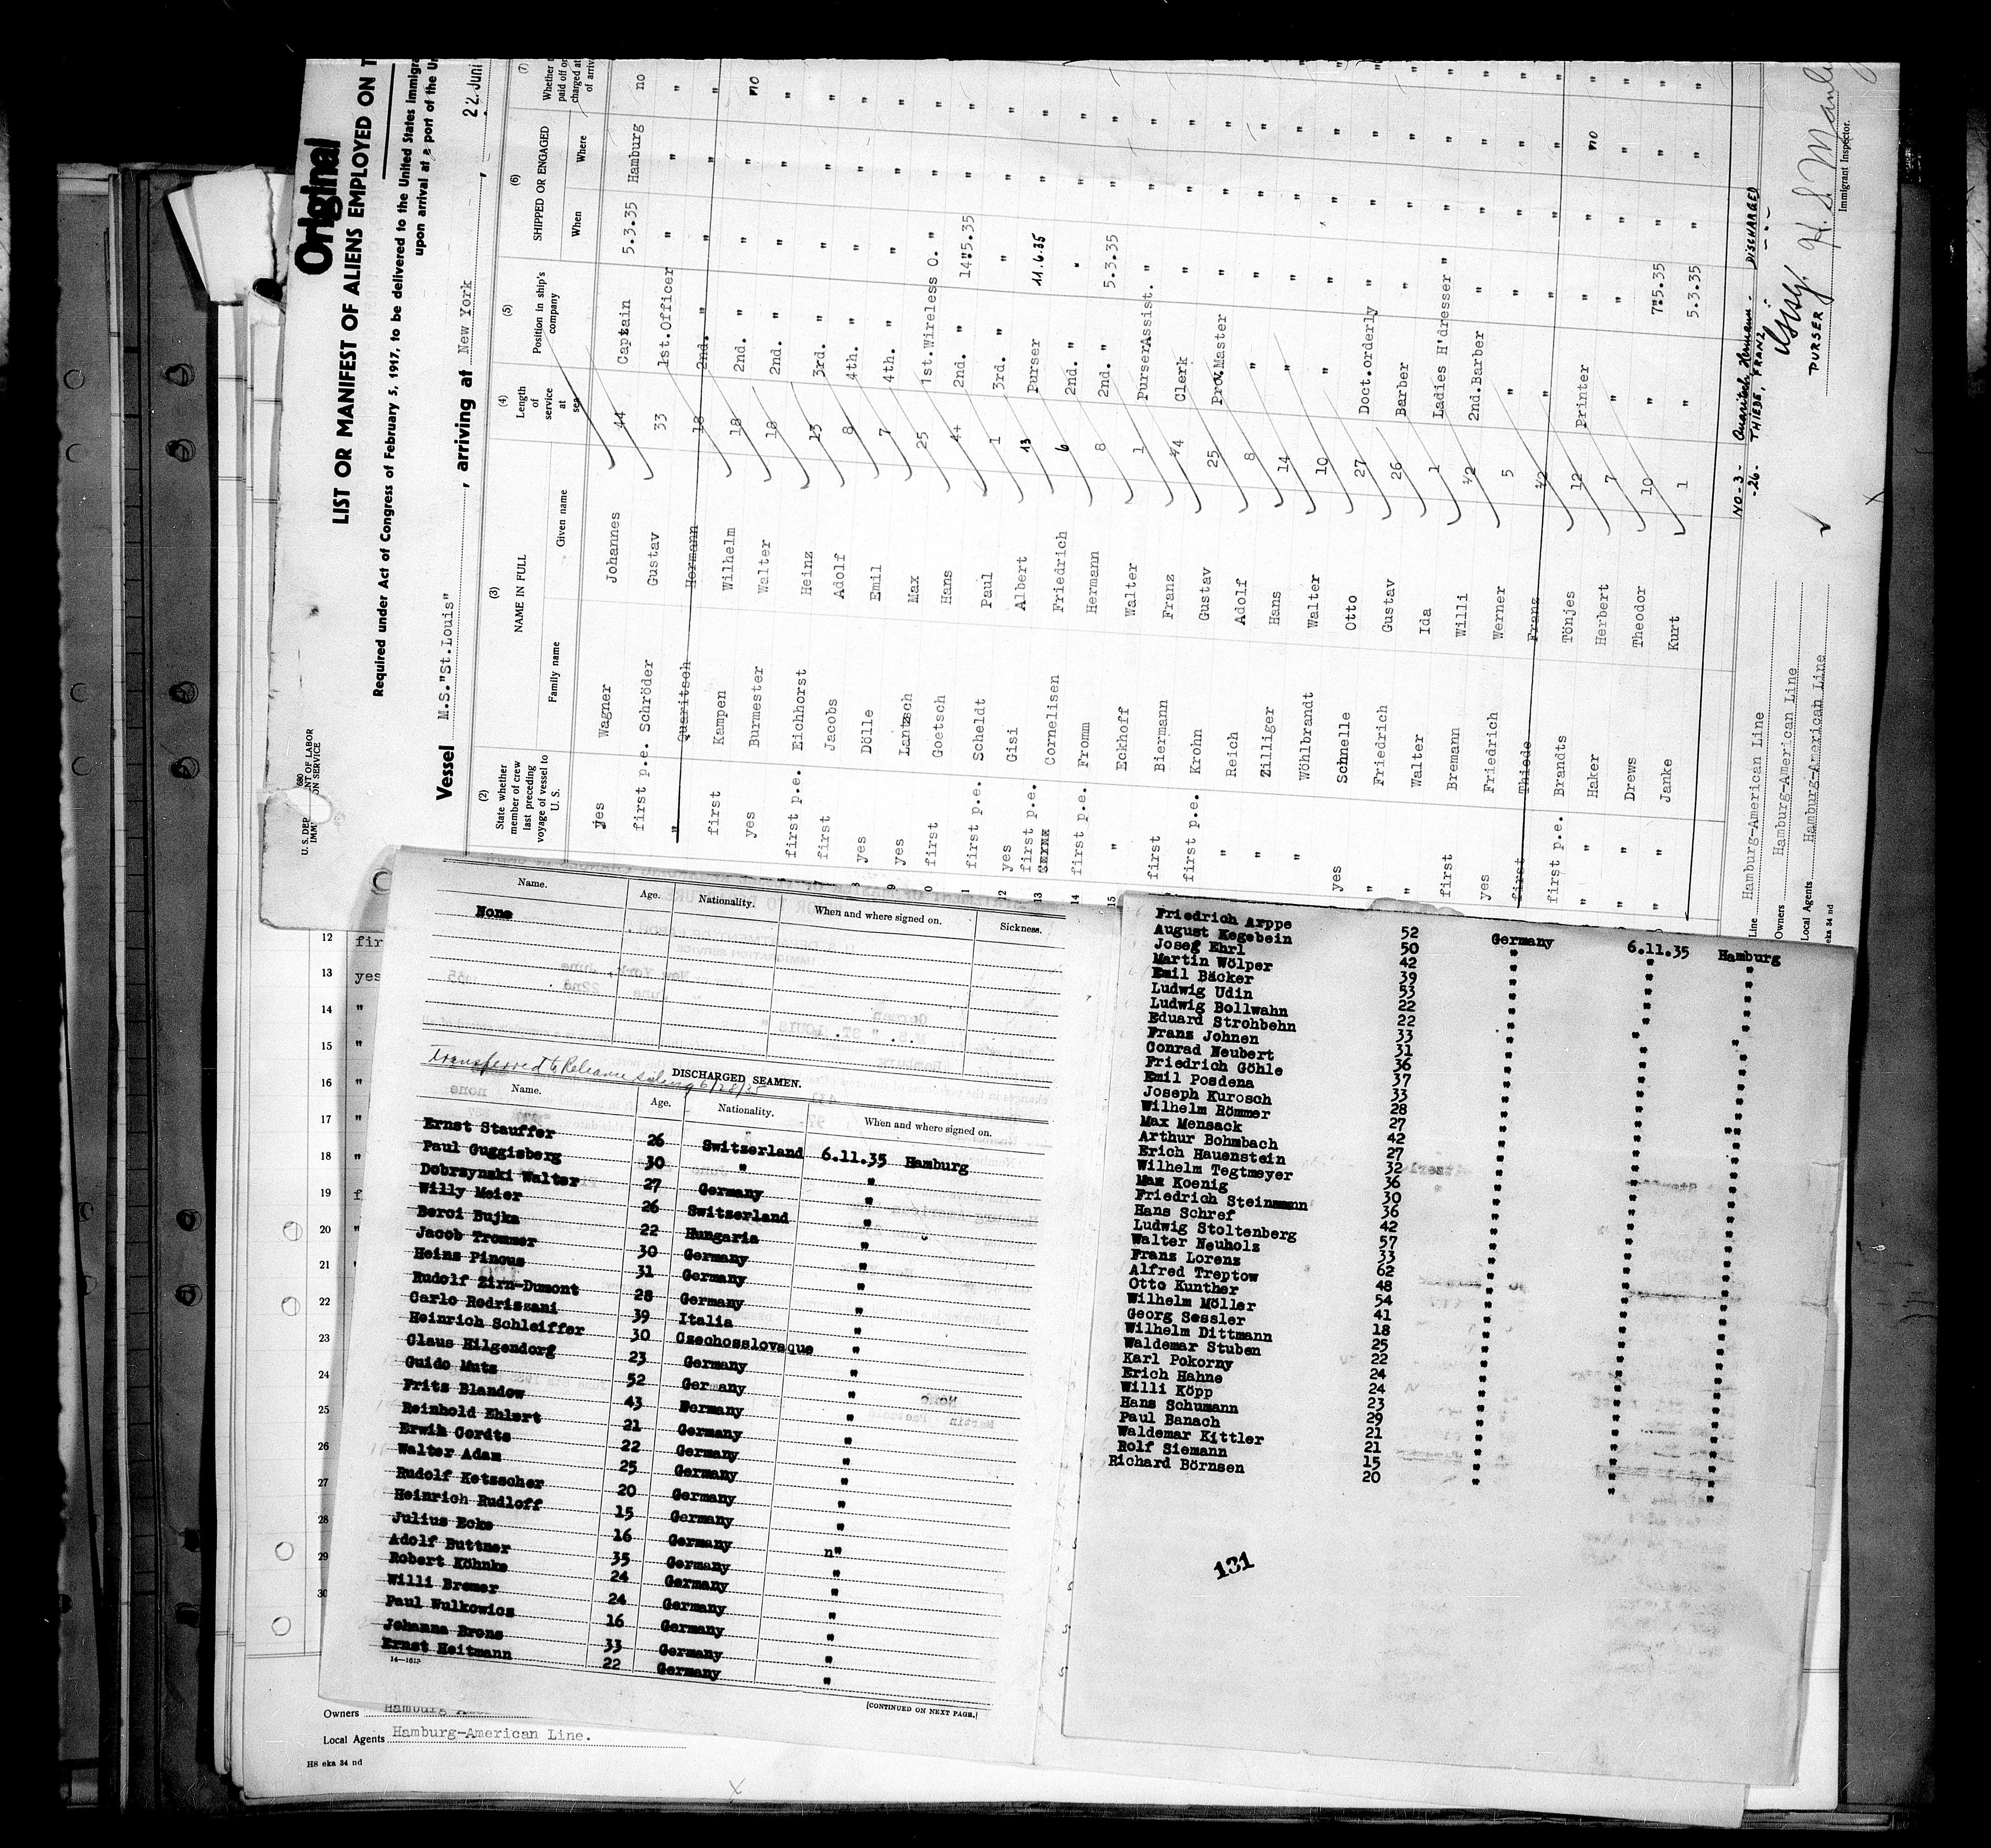 Original
LIST OR MANIFEST OF ALIENS EMPLOYED ON T
Required under Act of Congress of February 5, 1917, to be delivered to the United States Immigra
upon arrival at a port of the Un
U. S. DEP NT OF LABOR
IMM ON SERVICE
Vessel M.S."St.Louis" , arriving at New York , 22. Juni
(2) State whether member of crew last preceding voyage of vessel to U. S.
(3) NAME IN FULL
Family name Given name
(4) Length of service at sea
(5) Position in ship's company
(6) SHIPPED OR ENGAGED
When Where
(7) Whether paid off or charged at of arriv
yes Wagner Johannes 44 Captain 5.3.35 Hamburg no
first p.e. Schröder Gustav 33 1st.Officer " " "
" Quaritsch Hermann 18 2nd. " " " "
first Kampen Wilhelm 18 2nd. " " " no
yes Burmester Walter 18 2nd. " " " "
first p.e. Eichhorst Heinz 13 3rd. " " " "
first Jacobs Adolf 8 4th. " " " "
yes Dölle Emil 7 4th. " " " "
yes Lantzsch Max 25 1st.Wireless O. " " "
first Goetsch Hans 4+ 2nd. " 14.5.35 " "
first p.e. Scheldt Paul 1 3rd. " " " "
yes Gisi Albert 13 Purser 11.6.35 " "
first p.e. Cornelisen Friedrich 6 2nd. " " " "
first p.e. Fromm Hermann 8 2nd. " 5.3.35 " "
" Eckhoff Walter 1 PurserAssist. " " "
first Biermann Franz 4/4 Clerk " " "
first p.e. Krohn Gustav 25 Prov.Master " " "
" Reich Adolf 8 " " " "
" Zilliger Hans 14 " " " "
" Wöhlbrandt Walter 10 " " " "
yes Schnelle Otto 27 Doct.orderly " " "
" Friedrich Gustav 26 Barber " " "
" Walter Ida 1 Ladies H'dresser " " "
first Bremann Willi ½ 2nd.Barber " " "
yes Friedrich Werner 5 " " " "
first Thiede Franz ½ " " " "
first p.e. Brandts Tönjes 12 Printer " " no
" Haker Herbert 7 " " " "
" Drews Theodor 10 " 7.5.35 " "
" Janke Kurt 1 " 5.3.35 " "
NO-3- Quaritsch Hermann - DISCHARGED
-26- THIEDE, FRANZ - " -
Line Hamburg-American Line
Owners Hamburg-American Line
Local Agents Hamburg-American Line
eka 34 nd
PURSER
H. S. Manl
Immigrant Inspector.
Name. Age. Nationality. When and where signed on. Sickness.
None
transferred to Reliance sailing 6/28/35
DISCHARGED SEAMEN.
Name. Age. Nationality. When and where signed on.
Ernst Stauffer 26 Switzerland 6.11.35 Hamburg
Paul Guggisberg 30 " "
Dobrzynski Walter 27 Germany "
Willy Meier 26 Switzerland "
Berci Bujka 22 Hungaria "
Jacob Trommer 30 Germany "
Heinz Pincus 31 Germany "
Rudolf Zirn-Dumont 28 Germany "
Carlo Redrizzani 39 Italia "
Heinrich Schleiffer 30 Czechosslovaque "
Claus Hilgendorf 23 Germany "
Guido Mutz 52 Ger any "
Fritz Blandow 43 Wermany "
Reinhold Ehlert 21 Germany "
Erwin Cordts 22 Germany "
Walter Adam 25 Germany "
Rudolf Ketzscher 20 Germany "
Heinrich Rudloff 15 Germany "
Julius Ecke 16 Germany n"
Adolf Buttner 35 Germany "
Robert Köhnke 24 Germany "
Willi Bremer 24 Germany "
Paul Wulkowicz 16 Germany "
Johanna Brons 33 Germany "
Ernst Heitmann 22 Germany "
14—1613
[CONTINUED ON NEXT PAGE.]
Friedrich Arppe 52 Germany 6.11.35 Hamburg
August Kegebein 50 " " "
Josef Ehrl 42 " " "
Martin Wölper 39 " " "
Emil Bäcker 53 " " "
Ludwig Udin 22 " " "
Ludwig Bollwahn 22 " " "
Eduard Strohbehn 33 " " "
Franz Johnen 31 " " "
Conrad Neubert 36 " " "
Friedrich Göhle 37 " " "
Emil Posdena 33 " " "
Joseph Kurosch 28 " " "
Wilhelm Römmer 27 " " "
Max Mensack 42 " " "
Arthur Bohmbach 27 " " "
Erich Hauenstein 32 " " "
Wilhelm Tegtmeyer 36 " " "
Max Koenig 30 " " "
Friedrich Steinmann 36 " " "
Hans Schref 42 " " "
Ludwig Stoltenberg 57 " " "
Walter Neuholz 33 " " "
Franz Lorenz 62 " " "
Alfred Treptow 48 " " "
Otto Kunther 54 " " "
Wilhelm Möller 41 " " "
Georg Sessler 18 " " "
Wilhelm Dittmann 25 " " "
Waldemar Stuben 22 " " "
Karl Pokorny 24 " " "
Erich Hahne 24 " " "
Willi Köpp 23 " " "
Hans Schumann 29 " " "
Paul Banach 21 " " "
Waldemar Kittler 21 " " "
Rolf Siemann 15 " " "
Richard Börnsen 20 " " "
131
12 fir
13 yes
14 "
15 "
16 "
17 "
18 "
19 f
20 "
21 "
22
23
24
25
26
27
28
29
30
Owners Hamburg Ame
Local Agents Hamburg-American Line.
HS eka 34 nd